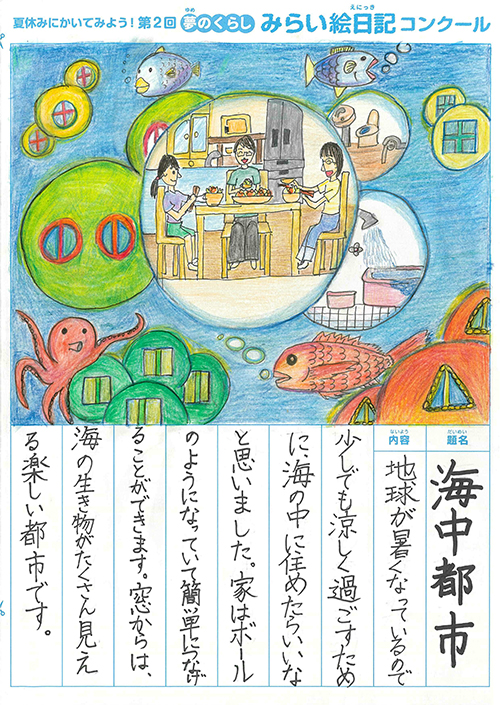 夏休みにかいてみよう!第2回 夢のくらし みらい絵日記コンクール
ゆめ
えにっき
だいめい
題名
海中都市
ないよう
内容
地球が暑くなっているので
少しでも涼しく過ごすため
に、海の中に住めたらいいな
と思いました。家はボール
のようになっていて簡単につなげ
ることができます。窓からは、
海の生き物がたくさん見え
る楽しい都市です。